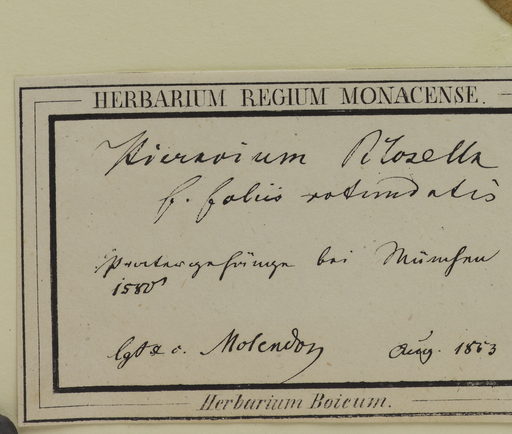 HERBARIUM REGIUM MONACENSE.
Hieracium Pilosella
f. foliis rotundatis
Pratergehänge bei München
1580'
lgt & c. Molendo Aug. 1863
Herbarium Boicum.